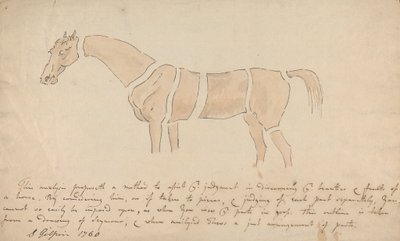 This analysis proposeth a method to assist ye judgment in discovering ye beauties & faults of
a horse. By considering him, as if taken to pieces, & judging of each part separately, You
cannot so easily be imposed upon, as when You view ye parts in gross. This outline is taken
from a drawing of Seymour, & when analysed shews a just arrangement of parts.
S Gilpin 1760